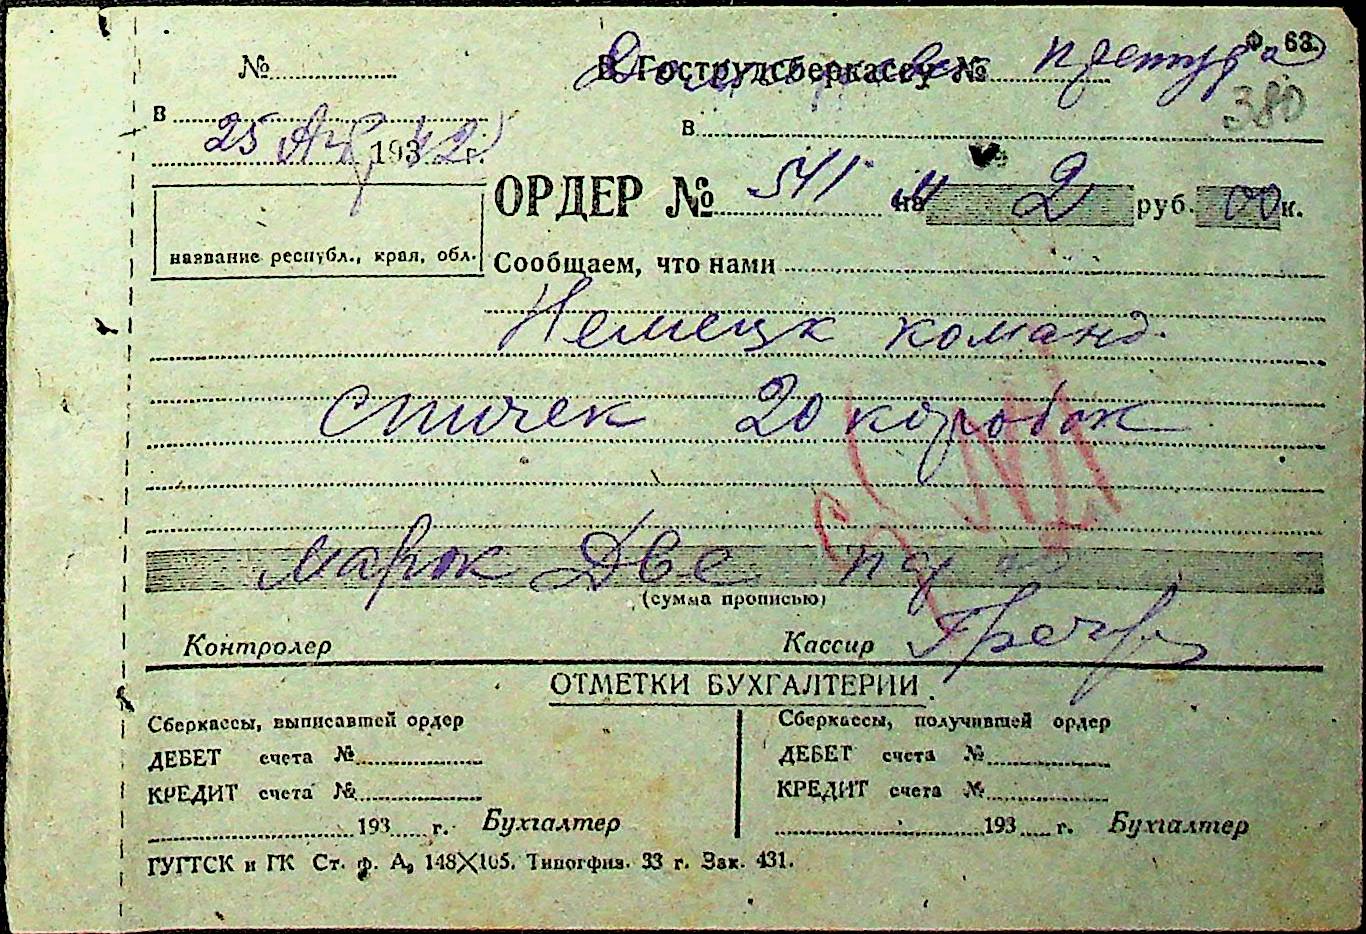 Ф. 63.
№
В Гострудсберкассу №
претура
380
в
в
25 Апр 1942 г.
ОРДЕР № 541 на 2 руб. 00 к.
название республ., края, обл.
Сообщаем, что нами
Немецк команд.
спичек 20 коробок
марок Две
(сумма прописью)
Контролер
Кассир
ОТМЕТКИ БУХГАЛТЕРИИ
Сберкассы, выписавшей ордер
ДЕБЕТ счета №
КРЕДИТ счета №
193 г. Бухгалтер
Сберкассы, получившей ордер
ДЕБЕТ счета №
КРЕДИТ счета №
193 г. Бухгалтер
ГУГТСК и ГК Ст. ф. А, 148×105. Типогфия. 33 г. Зак. 431.